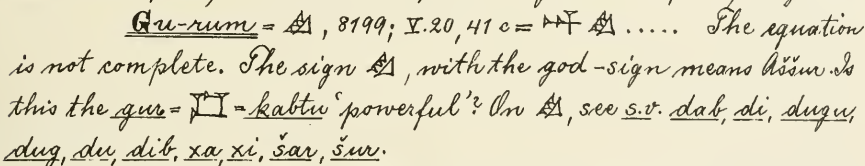 Gu-rum = 𒊹, 8199; V. 20, 41 c = 𒀭 𒊹 ..... The equation
is not complete. The sign 𒊹, with the god-sign means Aššur. Is
this the gur = = kabtu 'powerful'? On 𒊹, see s.v. dab, di, dugu,
dug, du, dib, xa, xi, šar, šur.